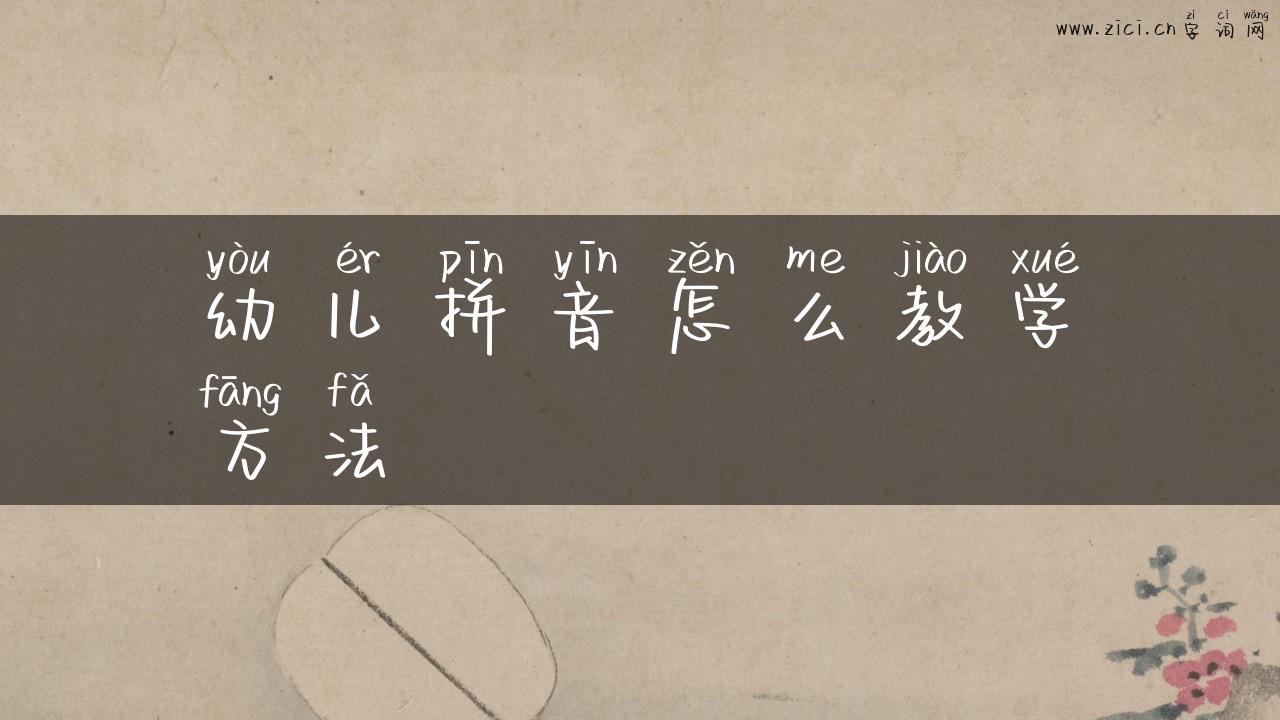 zì cí wǎng
www.zici.cn 字词网
yòu ér pīn yīn zěn me jiào xué
幼儿拼音怎么教学
fāng fǎ
方法